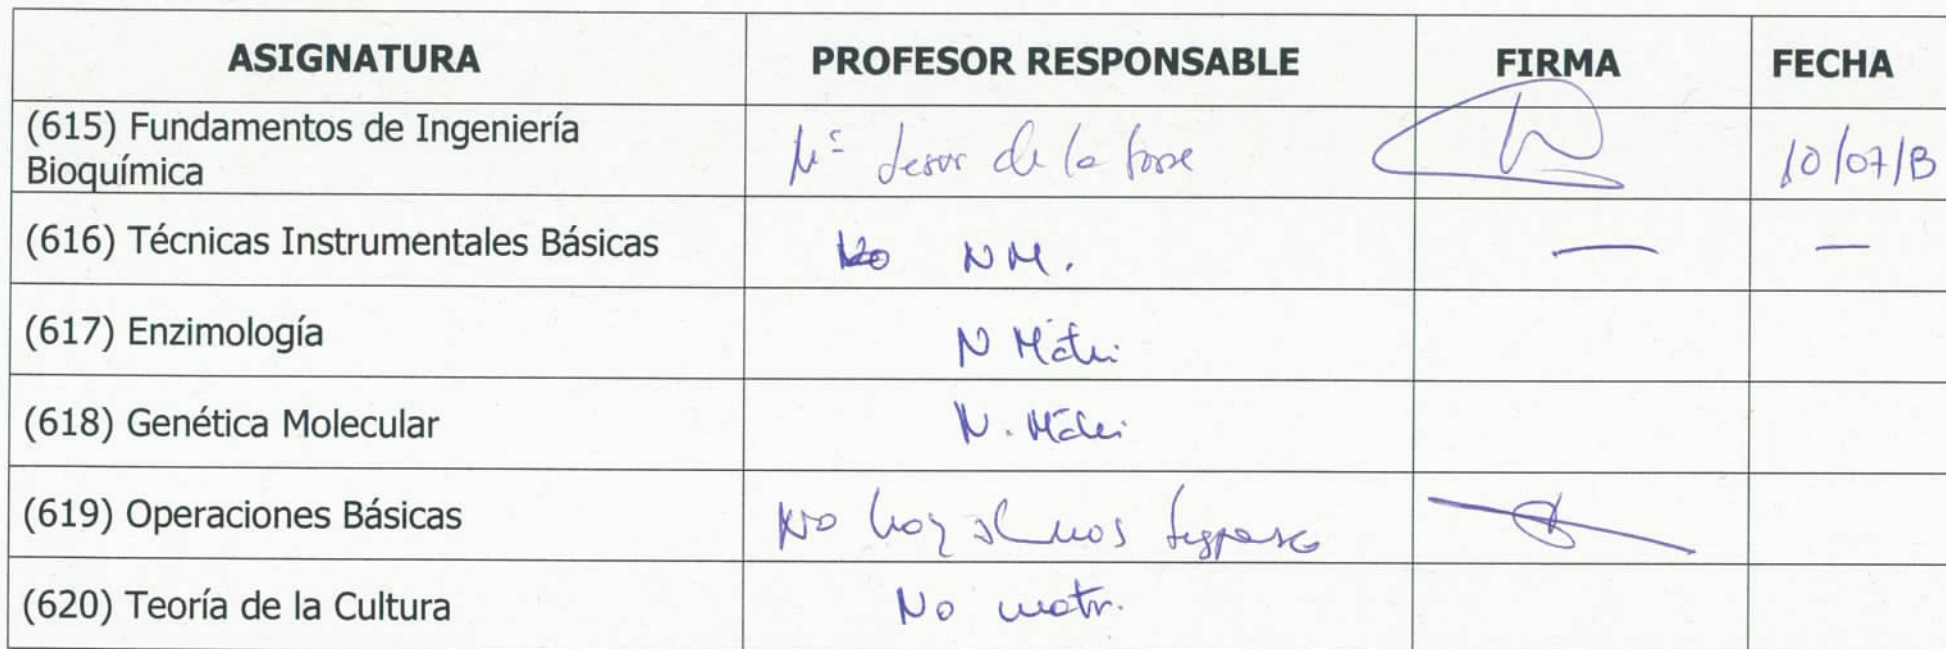 ASIGNATURA PROFESOR RESPONSABLE FIRMA FECHA
(615) Fundamentos de Ingeniería
Bioquímica
Mª Jesús de la Torre 10/07/13
(616) Técnicas Instrumentales Básicas No NM. — —
(617) Enzimología N Mátri
(618) Genética Molecular N. Mátri
(619) Operaciones Básicas No hay alumnos
(620) Teoría de la Cultura No matr.